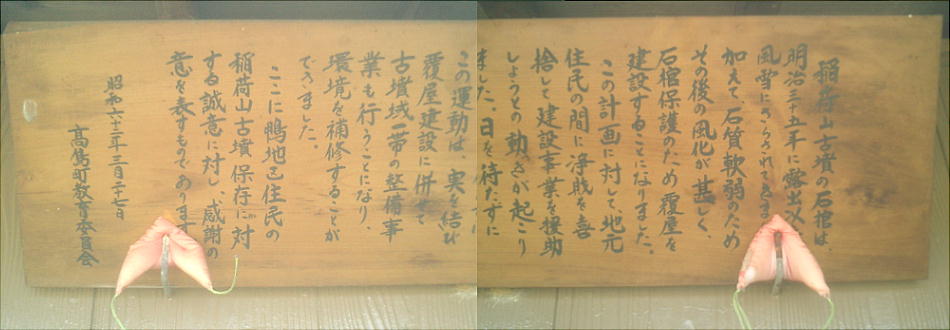 稲荷山古墳の石棺は、
明治三十五年に露出以
風雪にさらされてきま
加えて、石質軟弱のため
その後の風化が甚しく、
石棺保護のため覆屋を
建設することになりました。
この計画に対して地元
住民の間に浄財を喜
捨して建設事業を援助
しようとの動きが起こり
ました。日を待たずに
この運動は、実を結び
覆屋建設に併せて
古墳域一帯の整備事
業も行うことになり、
環境を補修することが
できました。
ここに鴨地区住民の
稲荷山古墳保存に対
する誠意に対し、感謝の
意を表すものであります
昭和六十三年三月二十七日
高島町教育委員会